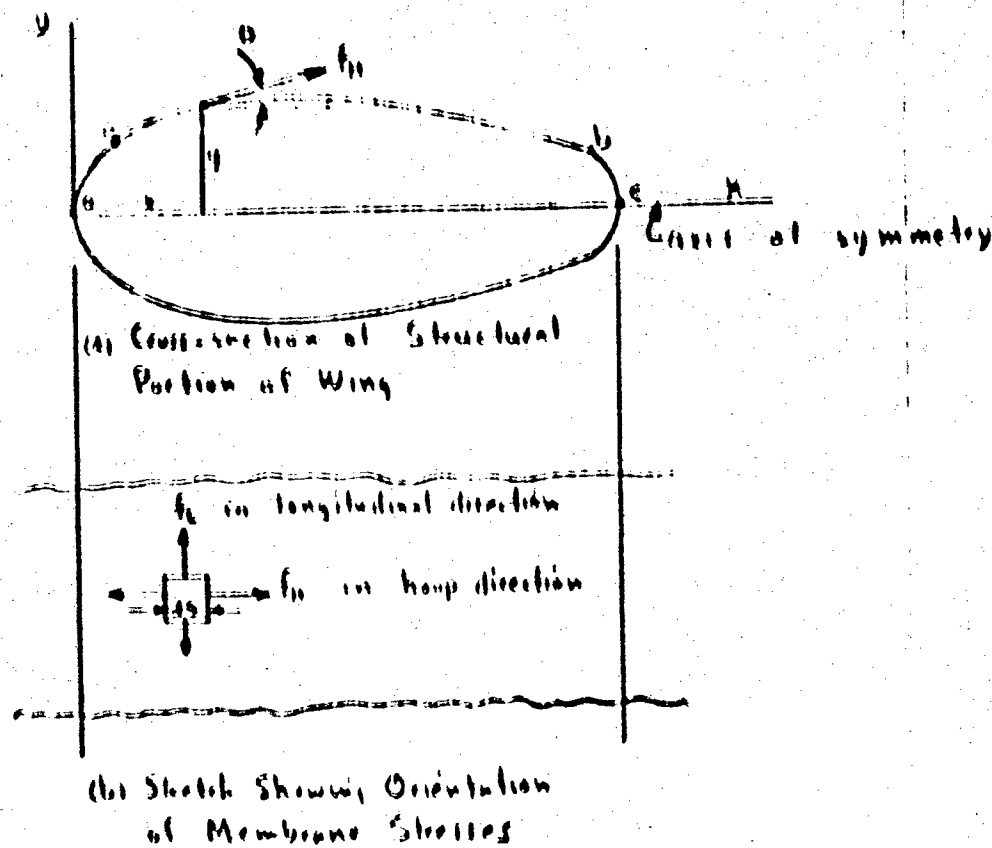 y
θ
f_H
b
y
x
c
x
axis of symmetry
(a) Cross-section of Structural
Portion of Wing
f_L in longitudinal direction
f_H in hoop direction
ΔS
(b) Sketch Showing Orientation
of Membrane Stresses